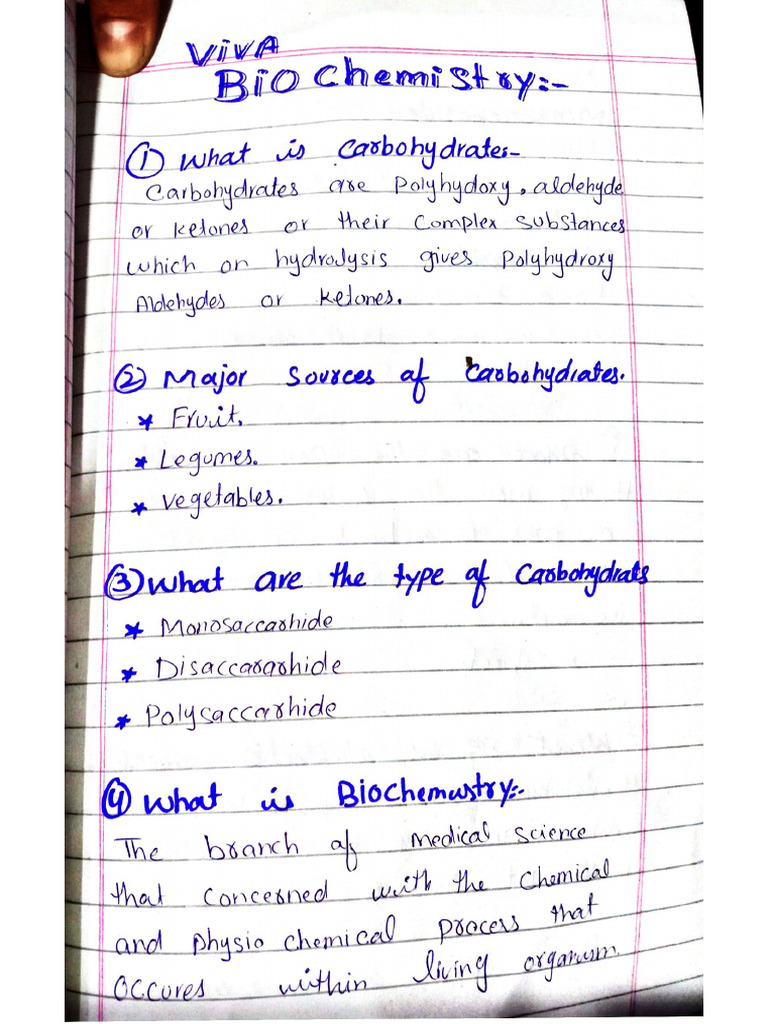 VIVA
BIO Chemistry:-
① What is Carbohydrates-
Carbohydrates are Polyhydoxy, aldehyde
or Ketones or their Complex Substances
which on hydrolysis gives Polyhydroxy
Aldehydes or Ketones.
② Major Sources of Carbohydrates.
* Fruit.
* Legumes.
* Vegetables.
③ What are the type of Carbohydrats
* Monosaccarhide
* Disaccararhide
* Polysaccarhide
④ What is Biochemistry:-
The branch of Medical Science
that Concerned with the Chemical
and Physio Chemical Process that
OCCures within living organism.